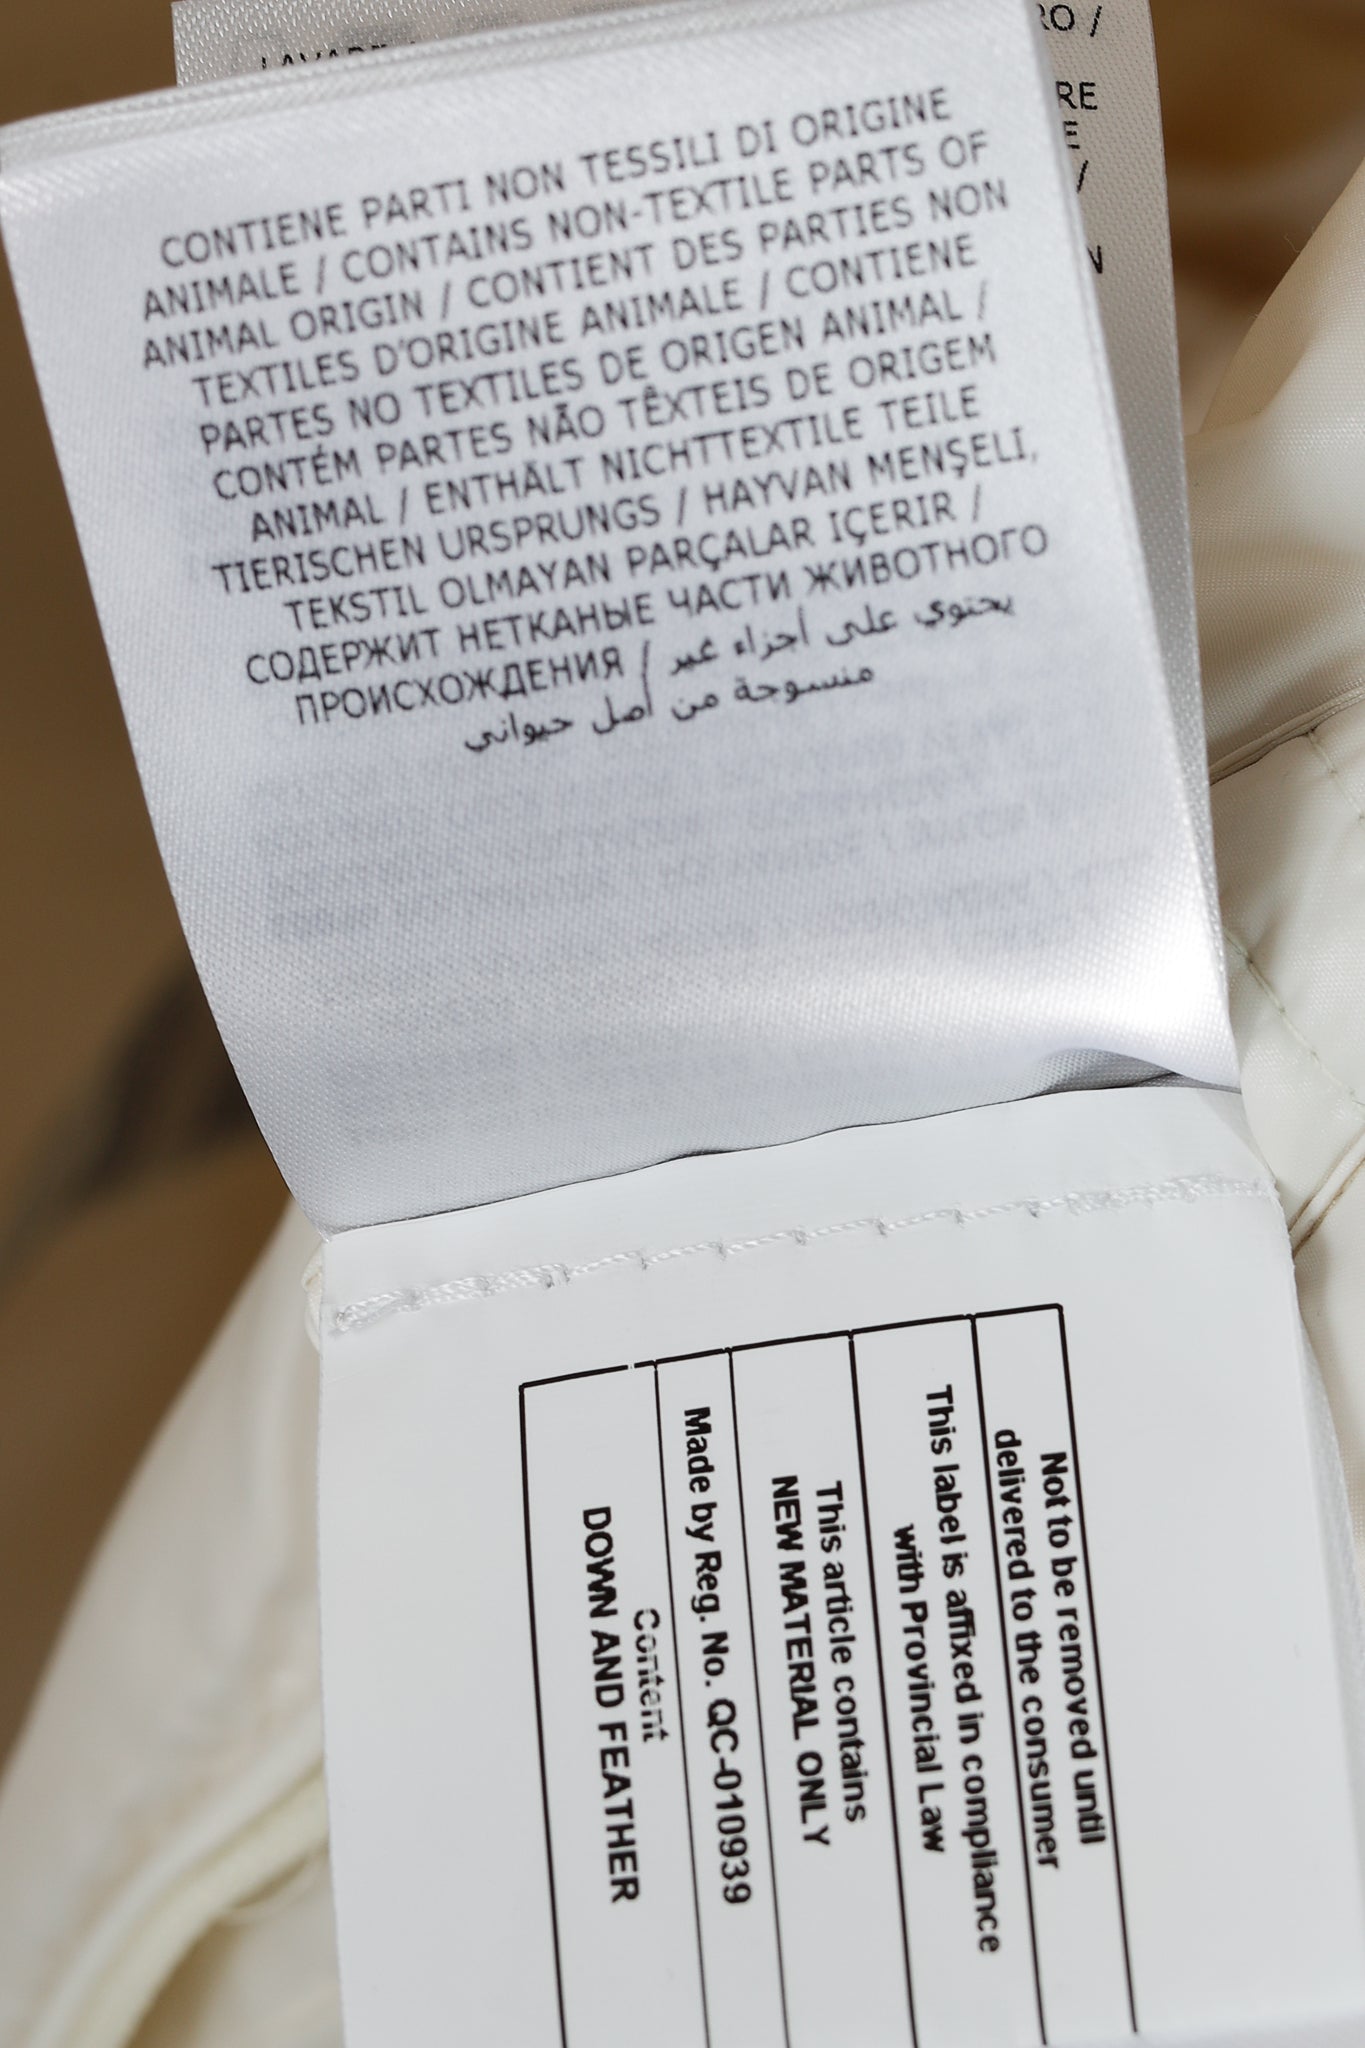 RO /
RE
CONTIENE PARTI NON TESSILI DI ORIGINE
ANIMALE / CONTAINS NON-TEXTILE PARTS OF
ANIMAL ORIGIN / CONTIENT DES PARTIES NON
TEXTILES D'ORIGINE ANIMALE / CONTIENE
PARTES NO TEXTILES DE ORIGEN ANIMAL /
CONTÉM PARTES NÃO TÊXTEIS DE ORIGEM
ANIMAL / ENTHÄLT NICHTTEXTILE TEILE
TIERISCHEN URSPRUNGS / HAYVAN MENŞELİ,
TEKSTİL OLMAYAN PARÇALAR İÇERİR /
СОДЕРЖИТ НЕТКАНЫЕ ЧАСТИ ЖИВОТНОГО
ПРОИСХОЖДЕНИЯ / يحتوي على أجزاء غير
منسوجة من أصل حيواني
Not to be removed until
delivered to the consumer
This label is affixed in compliance
with Provincial Law
This article contains
NEW MATERIAL ONLY
Made by Reg. No. QC-010939
Content
DOWN AND FEATHER